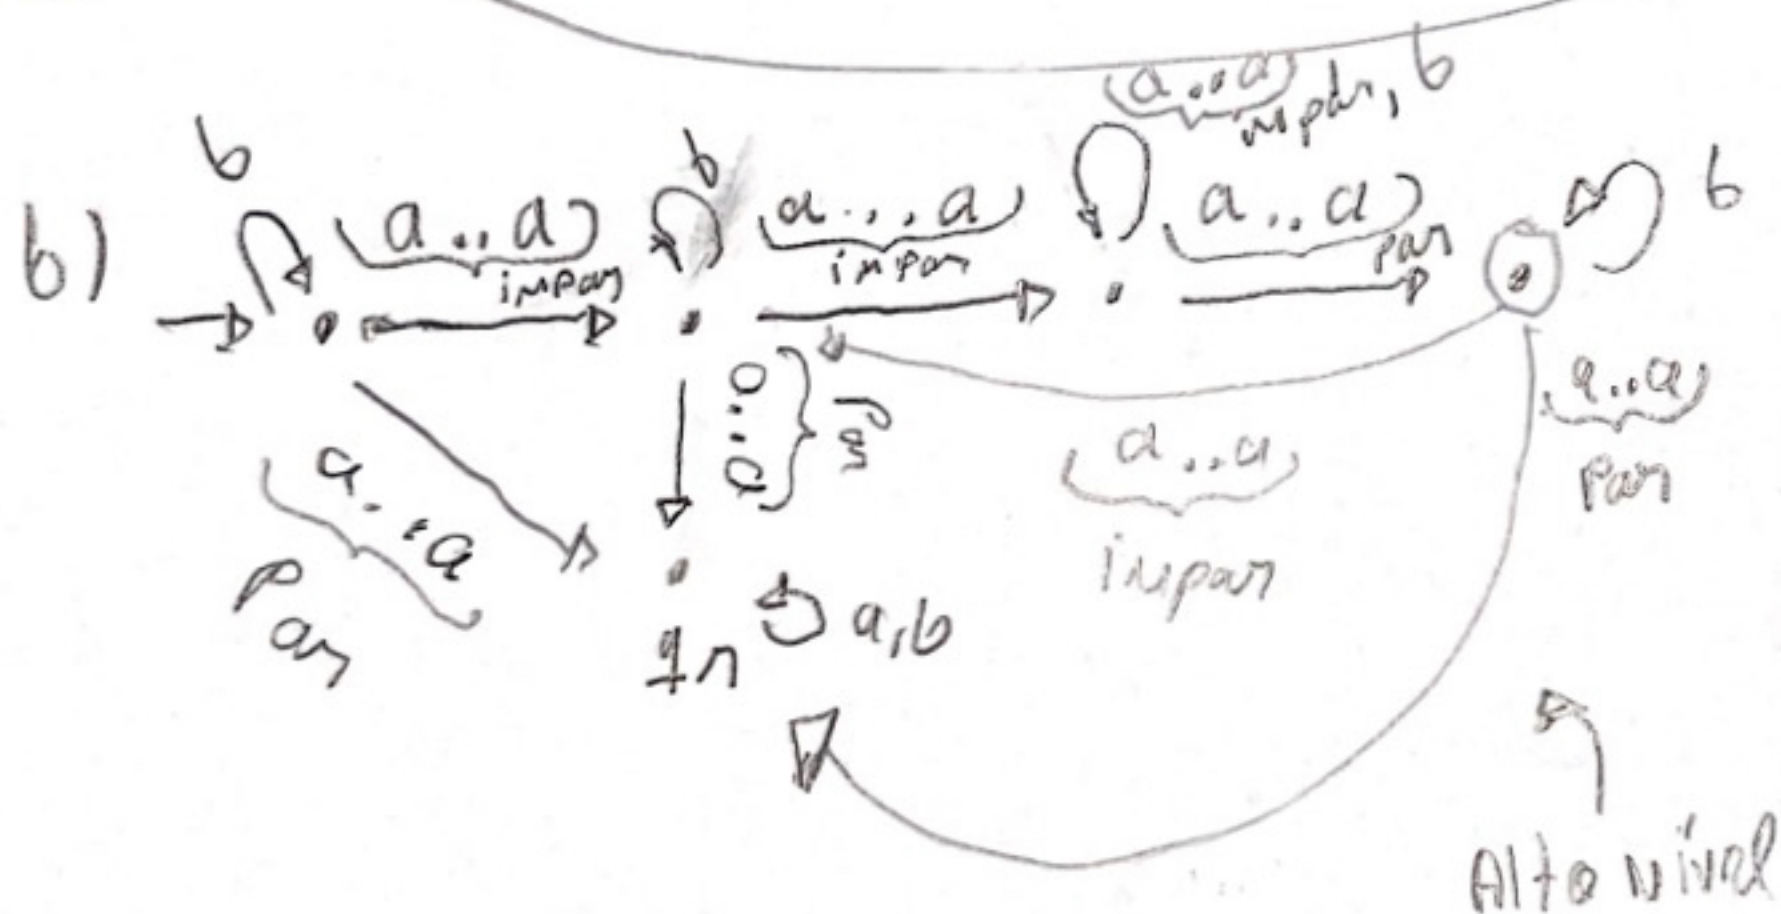 b)
b
a..a
impar
b
a...a
impar
a..a
impar, b
a..a
par
b
a..a
par
a..a
par
a..a
impar
a..a
par
a,b
Alto nível